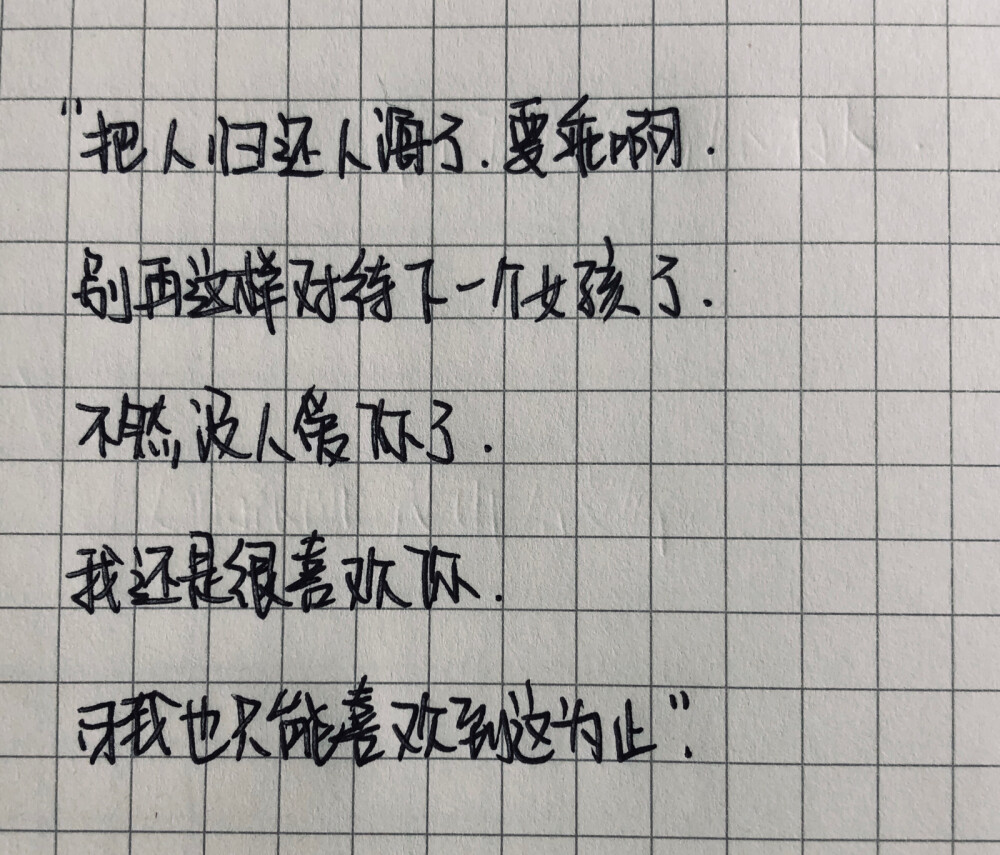 "把人归还人海了.要乖啊.
别再这样对待下一个女孩了.
不然没人爱你了.
我还是很喜欢你.
我也只能喜欢到这为止".